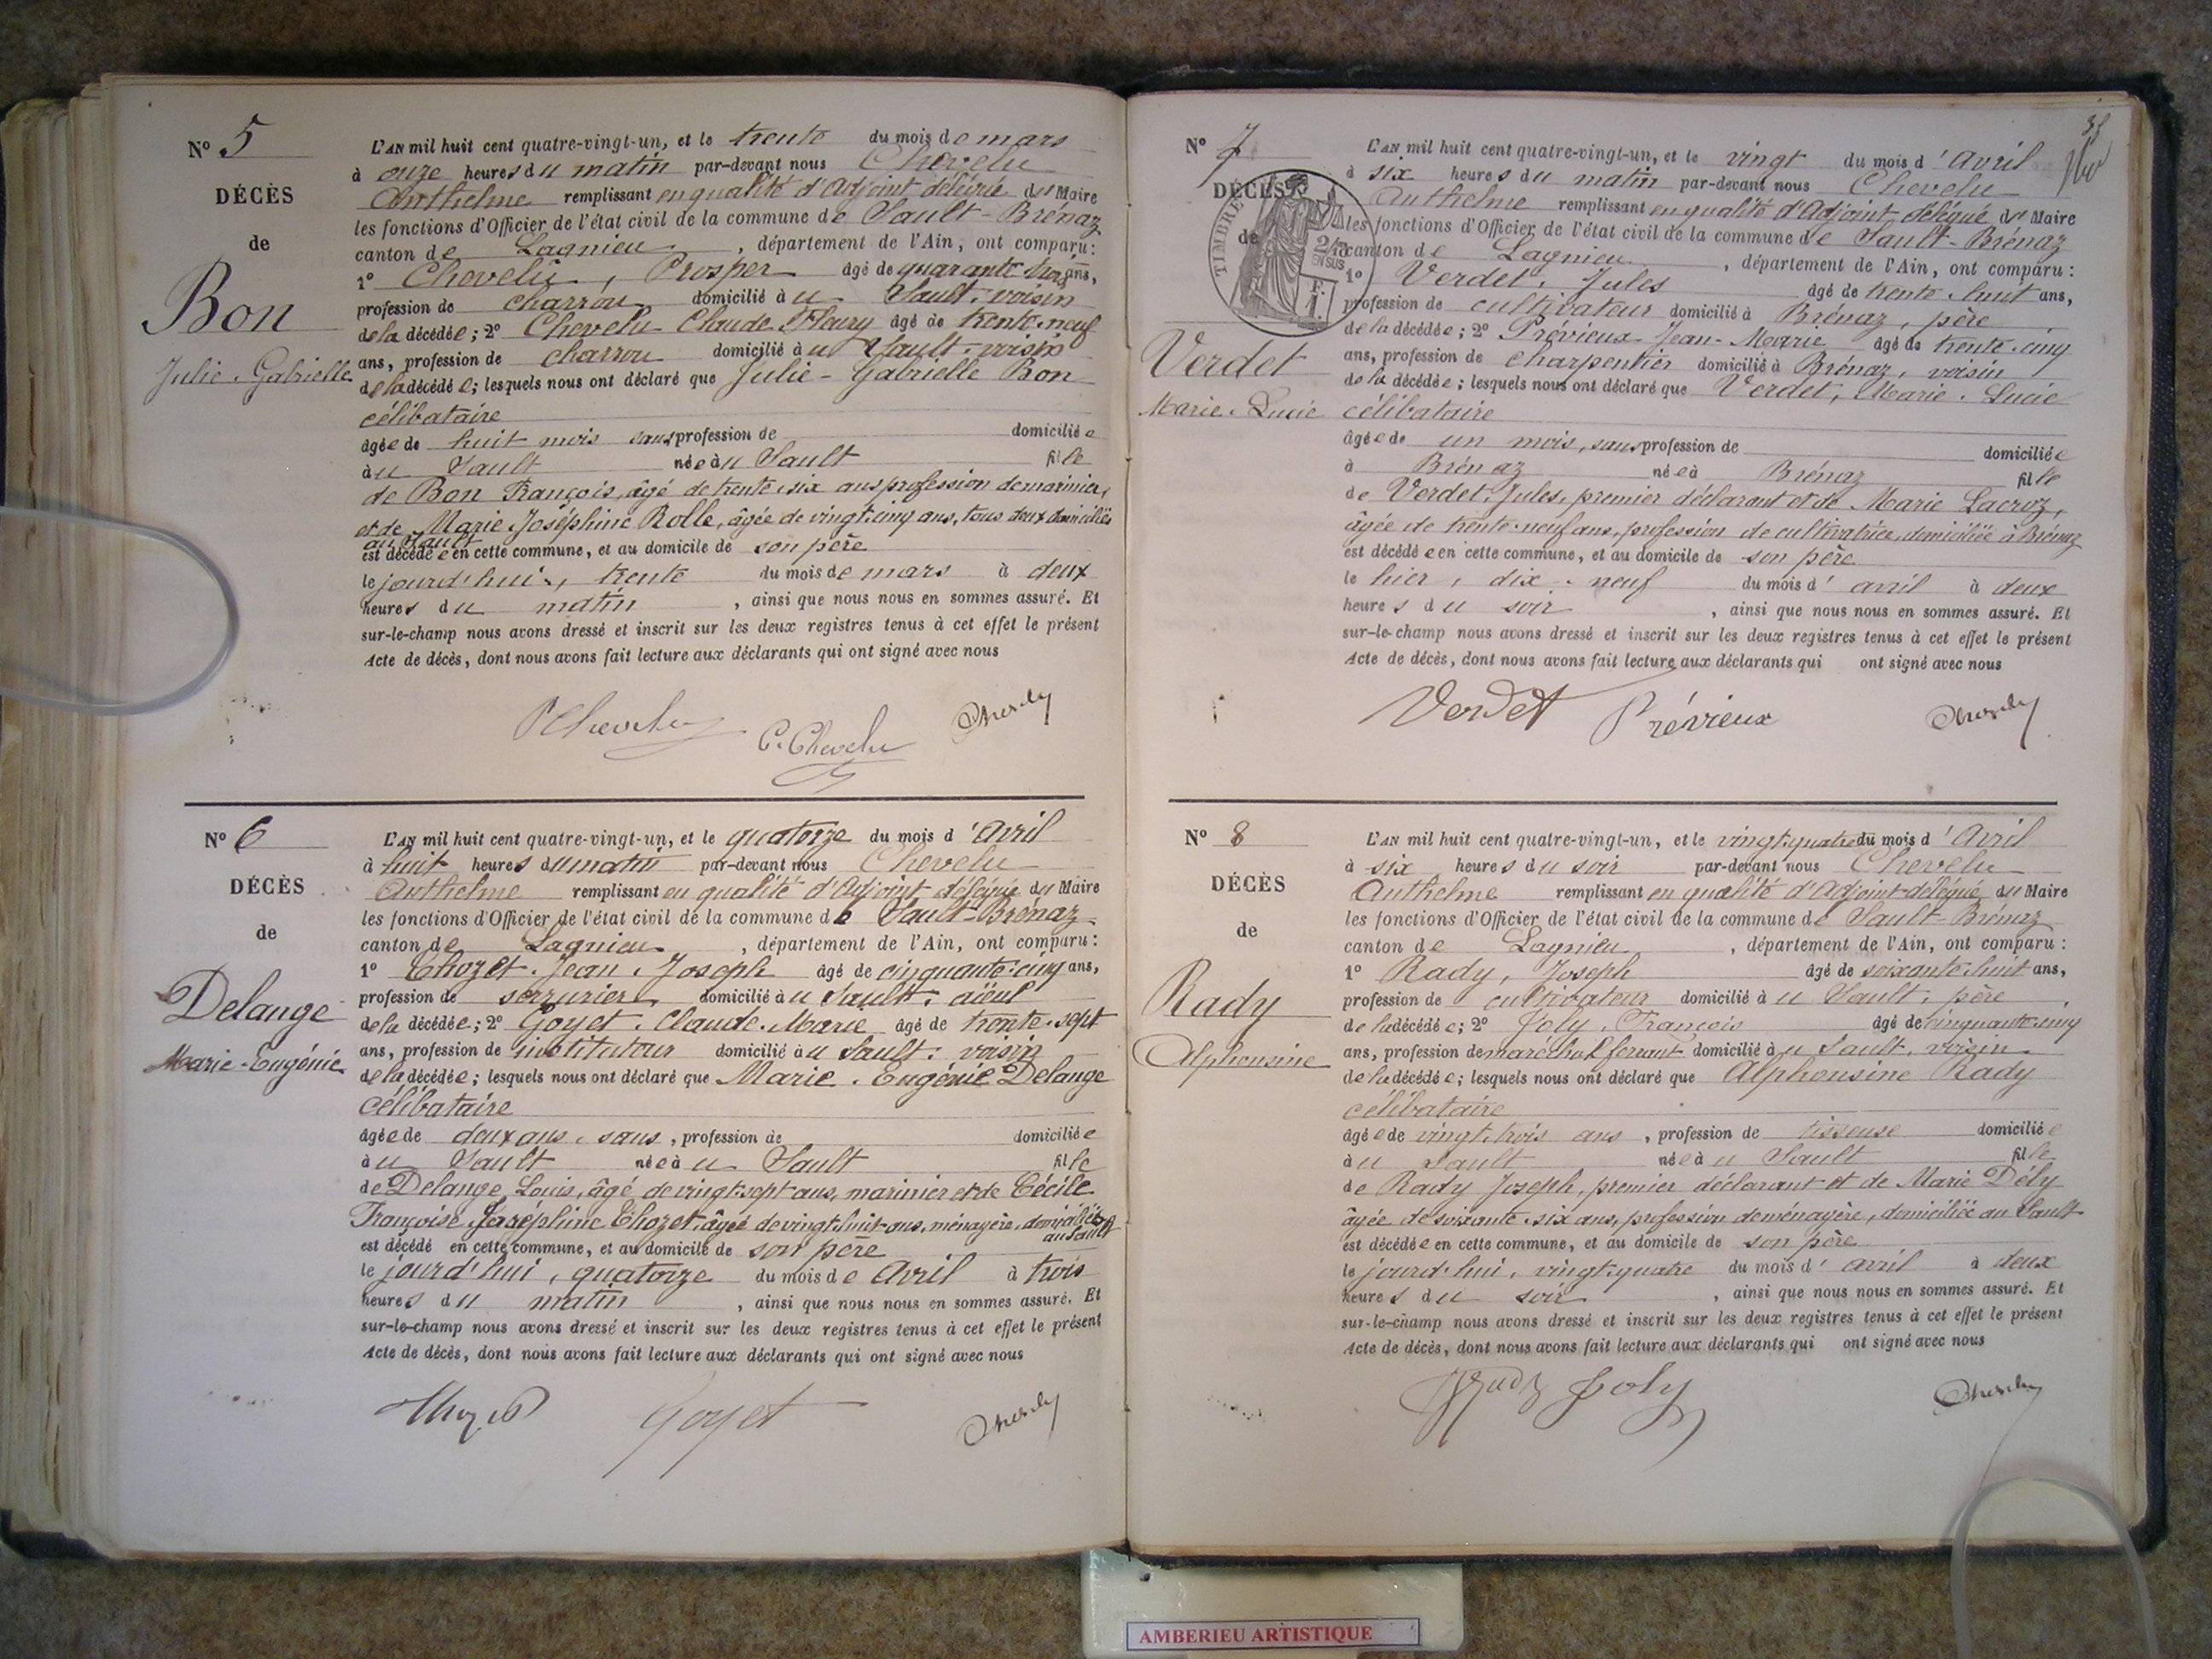 N° 5
DÉCÈS
de
Bon
Julie-Gabrielle
L'AN mil huit cent quatre-vingt-un, et le trente du mois de mars
à onze heures du matin par-devant nous Chevelu
Anthelme remplissant en qualité d'Adjoint délégué du Maire
les fonctions d'Officier de l'état civil de la commune de Sault-Brénaz
canton de Lagnieu, département de l'Ain, ont comparu:
1° Chevelu, Prosper âgé de quarante trois ans,
profession de charron domicilié au Sault, voisin
de la décédée; 2° Chevelu Claude Fleury âgé de trente-neuf
ans, profession de charron domicilié au Sault, voisin
de la décédée; lesquels nous ont déclaré que Julie-Gabrielle Bon
célibataire
âgée de huit mois sans profession de domiciliée
au Sault née au Sault fille
de Bon François, âgé de trente-six ans profession de marinier,
et de Marie Joséphine Rolle, âgée de vingt-cinq ans, tous deux domiciliés
au Sault
est décédée en cette commune, et au domicile de son père
le jourd'hui, trente du mois de mars à deux
heures du matin, ainsi que nous nous en sommes assuré. Et
sur-le-champ nous avons dressé et inscrit sur les deux registres tenus à cet effet le présent
Acte de décès, dont nous avons fait lecture aux déclarants qui ont signé avec nous
P Chevelu C. Chevelu Chevelu
N° 6
DÉCÈS
de
Delange
Marie-Eugénie
L'AN mil huit cent quatre-vingt-un, et le quatorze du mois d'Avril
à huit heures du matin par-devant nous Chevelu
Anthelme remplissant en qualité d'Adjoint délégué du Maire
les fonctions d'Officier de l'état civil de la commune de Sault-Brénaz
canton de Lagnieu, département de l'Ain, ont comparu:
1° Thozet Jean Joseph âgé de cinquante-cinq ans,
profession de serrurier domicilié au Sault, aïeul
de la décédée; 2° Goyet Claude Marie âgé de trente-sept
ans, profession de instituteur domicilié au Sault, voisin
de la décédée; lesquels nous ont déclaré que Marie Eugénie Delange
célibataire
âgée de deux ans, sans, profession de domiciliée
au Sault née au Sault fille
de Delange Louis, âgé de vingt-sept ans, marinier et de Cécile
Françoise Joséphine Thozet, âgée de vingt-huit ans, ménagère, domiciliés
au Sault
est décédé en cette commune, et au domicile de son père
le jourd'hui, quatorze du mois de Avril à trois
heures du matin, ainsi que nous nous en sommes assuré. Et
sur-le-champ nous avons dressé et inscrit sur les deux registres tenus à cet effet le présent
Acte de décès, dont nous avons fait lecture aux déclarants qui ont signé avec nous
Thozet Goyet Chevelu
35
N° 7
DÉCÈS
de
TIMBRE
2/10 EN SUS
Verdet
Marie-Lucie
L'AN mil huit cent quatre-vingt-un, et le vingt du mois d'Avril
à six heures du matin par-devant nous Chevelu
Anthelme remplissant en qualité d'Adjoint délégué du Maire
les fonctions d'Officier de l'état civil de la commune de Sault-Brénaz
canton de Lagnieu, département de l'Ain, ont comparu:
1° Verdet, Jules âgé de trente-huit ans,
profession de cultivateur domicilié à Brénaz, père
de la décédée; 2° Prévieux Jean-Marie âgé de trente-cinq
ans, profession de charpentier domicilié à Brénaz, voisin
de la décédée; lesquels nous ont déclaré que Verdet, Marie Lucie
célibataire
âgée de un mois, sans profession de domiciliée
à Brénaz née à Brénaz fille
de Verdet, Jules, premier déclarant et de Marie Lacroz,
âgée de trente-neuf ans, profession de cultivatrice, domiciliée à Brénaz
est décédée en cette commune, et au domicile de son père
le hier, dix-neuf du mois d'avril à deux
heures du soir, ainsi que nous nous en sommes assuré. Et
sur-le-champ nous avons dressé et inscrit sur les deux registres tenus à cet effet le présent
Acte de décès, dont nous avons fait lecture aux déclarants qui ont signé avec nous
Verdet Prévieux Chevelu
N° 8
DÉCÈS
de
Rady
Alphonsine
L'AN mil huit cent quatre-vingt-un, et le vingt-quatre du mois d'Avril
à six heures du soir par-devant nous Chevelu
Anthelme remplissant en qualité d'Adjoint délégué du Maire
les fonctions d'Officier de l'état civil de la commune de Sault-Brénaz
canton de Lagnieu, département de l'Ain, ont comparu:
1° Rady, Joseph âgé de soixante-huit ans,
profession de cultivateur domicilié au Sault, père
de la décédée; 2° Joly, François âgé de cinquante-cinq
ans, profession de maréchal ferrant domicilié au Sault, voisin
de la décédée; lesquels nous ont déclaré que Alphonsine Rady
célibataire
âgée de vingt-trois ans, profession de tisseuse domiciliée
au Sault née au Sault fille
de Rady Joseph, premier déclarant et de Marie Dély
âgée de soixante-six ans, profession de ménagère, domiciliée au Sault
est décédée en cette commune, et au domicile de son père
le jourd'hui, vingt-quatre du mois d'avril à deux
heures du soir, ainsi que nous nous en sommes assuré. Et
sur-le-champ nous avons dressé et inscrit sur les deux registres tenus à cet effet le présent
Acte de décès, dont nous avons fait lecture aux déclarants qui ont signé avec nous
Rady Joly Chevelu
AMBERIEU ARTISTIQUE